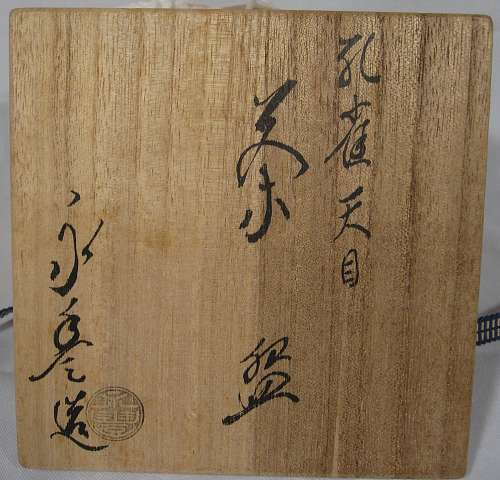 孔雀天目
茶盌
永壽造